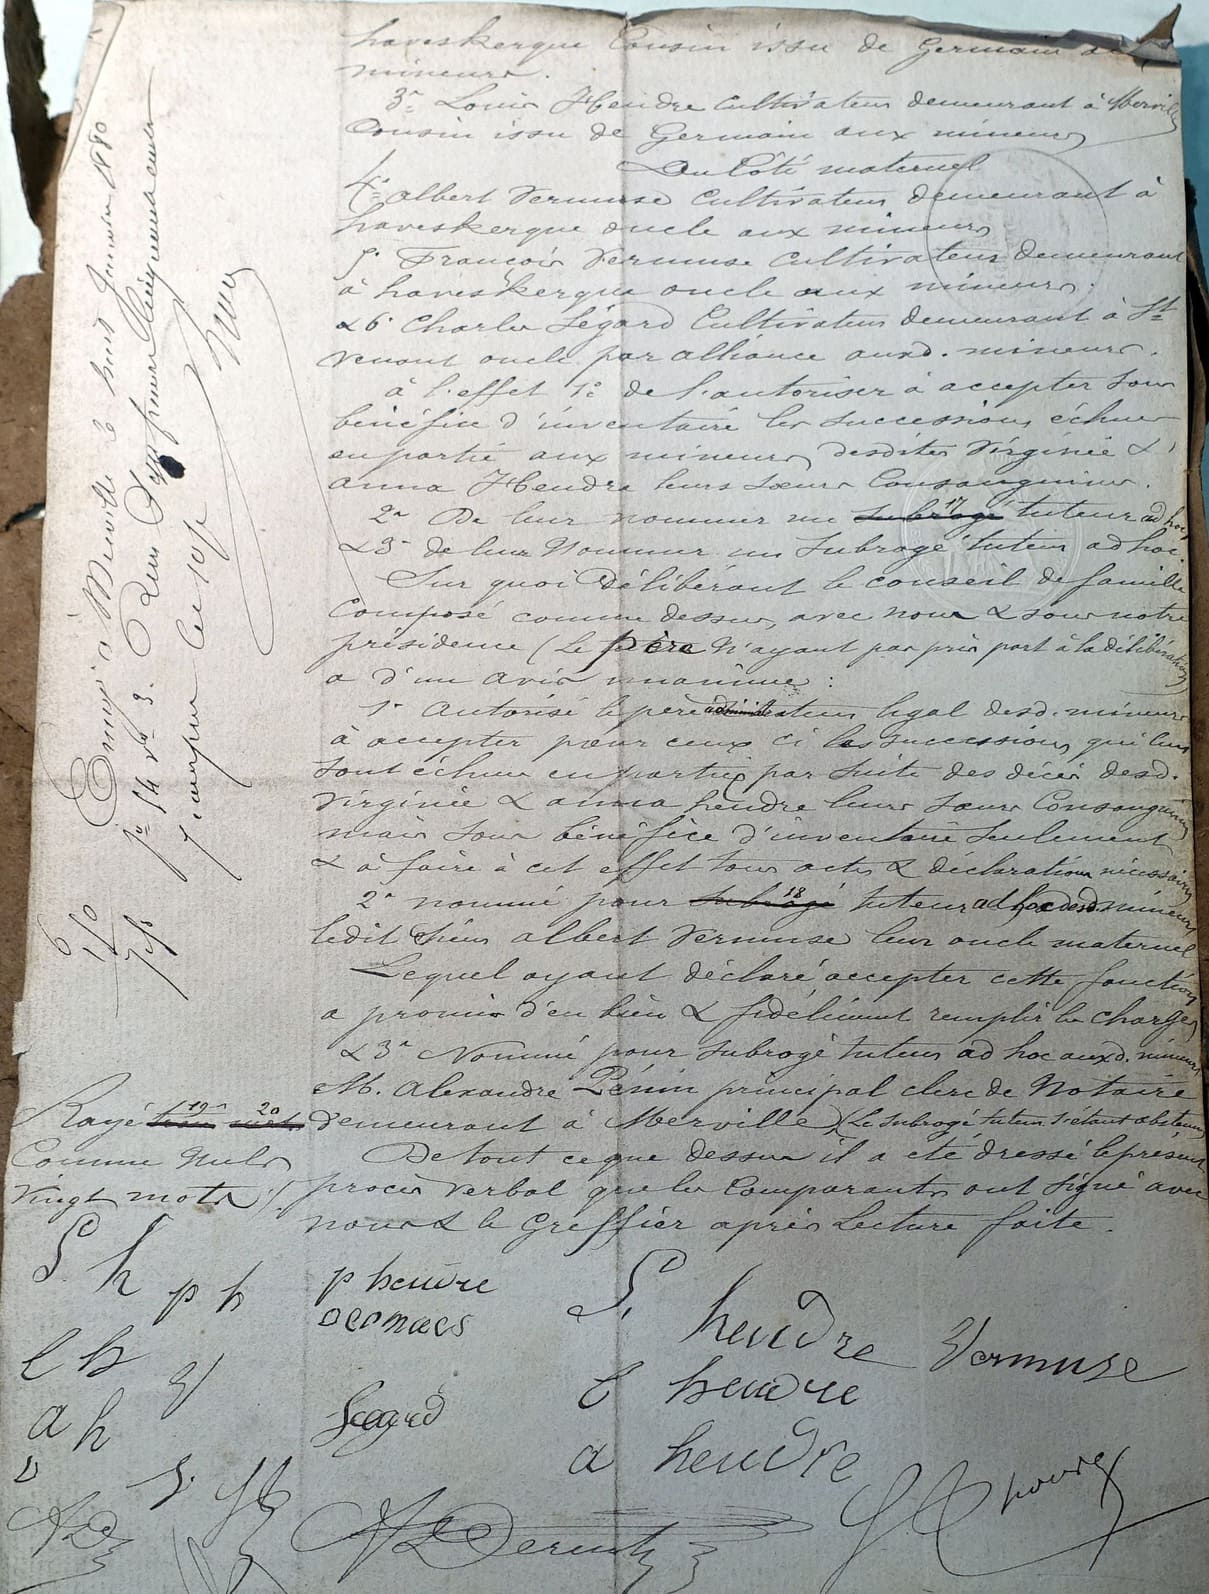 haveskerque Cousin issu de Germain des
mineurs.
3° Louis Hendre Cultivateur demeurant à Merville
Cousin issu de Germain aux mineurs
Du Côté maternel
4° albert Vermuse Cultivateur demeurant à
haveskerque oncle aux mineurs
5° François Vermuse Cultivateur demeurant
à haveskerque oncle aux mineurs.
& 6° Charles Ségard Cultivateur demeurant à St
Venant oncle par alliance auxd. mineurs.
à l'effet 1° de l'autoriser à accepter sous
bénéfice d'inventaire les successions échues
en partie aux mineurs desdites Virginie &
anna Hendre leurs sœurs Consanguines.
2° De leur nommer un subrogé 17 tuteur ad hoc
& 3° de leur Nommer un Subrogé tuteur ad hoc.
Sur quoi Délibérant le conseil de famille
Composé comme dessus, avec nous & sous notre
présidence (Le père N'ayant pas pris part à la délibération)
a d'un avis unanime :
1° Autorisé le père administrateur légal desd. mineurs
à accepter pour ceux ci les successions qui leur
sont échues en partie par suite des décès desd.
Virginie & anna hendre leurs sœurs Consanguines
mais sous bénéfice d'inventaire seulement
& à faire à cet effet tous actes & déclarations nécessaires
2° nommé pour subrogé 18 tuteur ad hoc desd. mineurs
ledit Sieur albert Vermuse leur oncle maternel
Lequel ayant déclaré accepter cette fonction
a promis d'en bien & fidèlement remplir les charges
& 3° Nommé pour subrogé tuteur ad hoc auxd. mineurs
M. Alexandre Pénin principal clerc de Notaire
demeurant à Merville, (Le subrogé tuteur s'étant abstenu)
De tout ce que dessus il a été dressé le présent
procès verbal que les Comparants ont signé avec
nous & le Greffier après Lecture faite.
Enregé à Merville le huit Janvier 1880
f° 54 r° 3.
6
1,50
7,50
Rayé 19 20
Comme Nuls
Vingt mots
S. h p h
l h V
a h
D
p hendre
Decmaes
S. hendre Vermuse
l hendre
Segard
a hendre